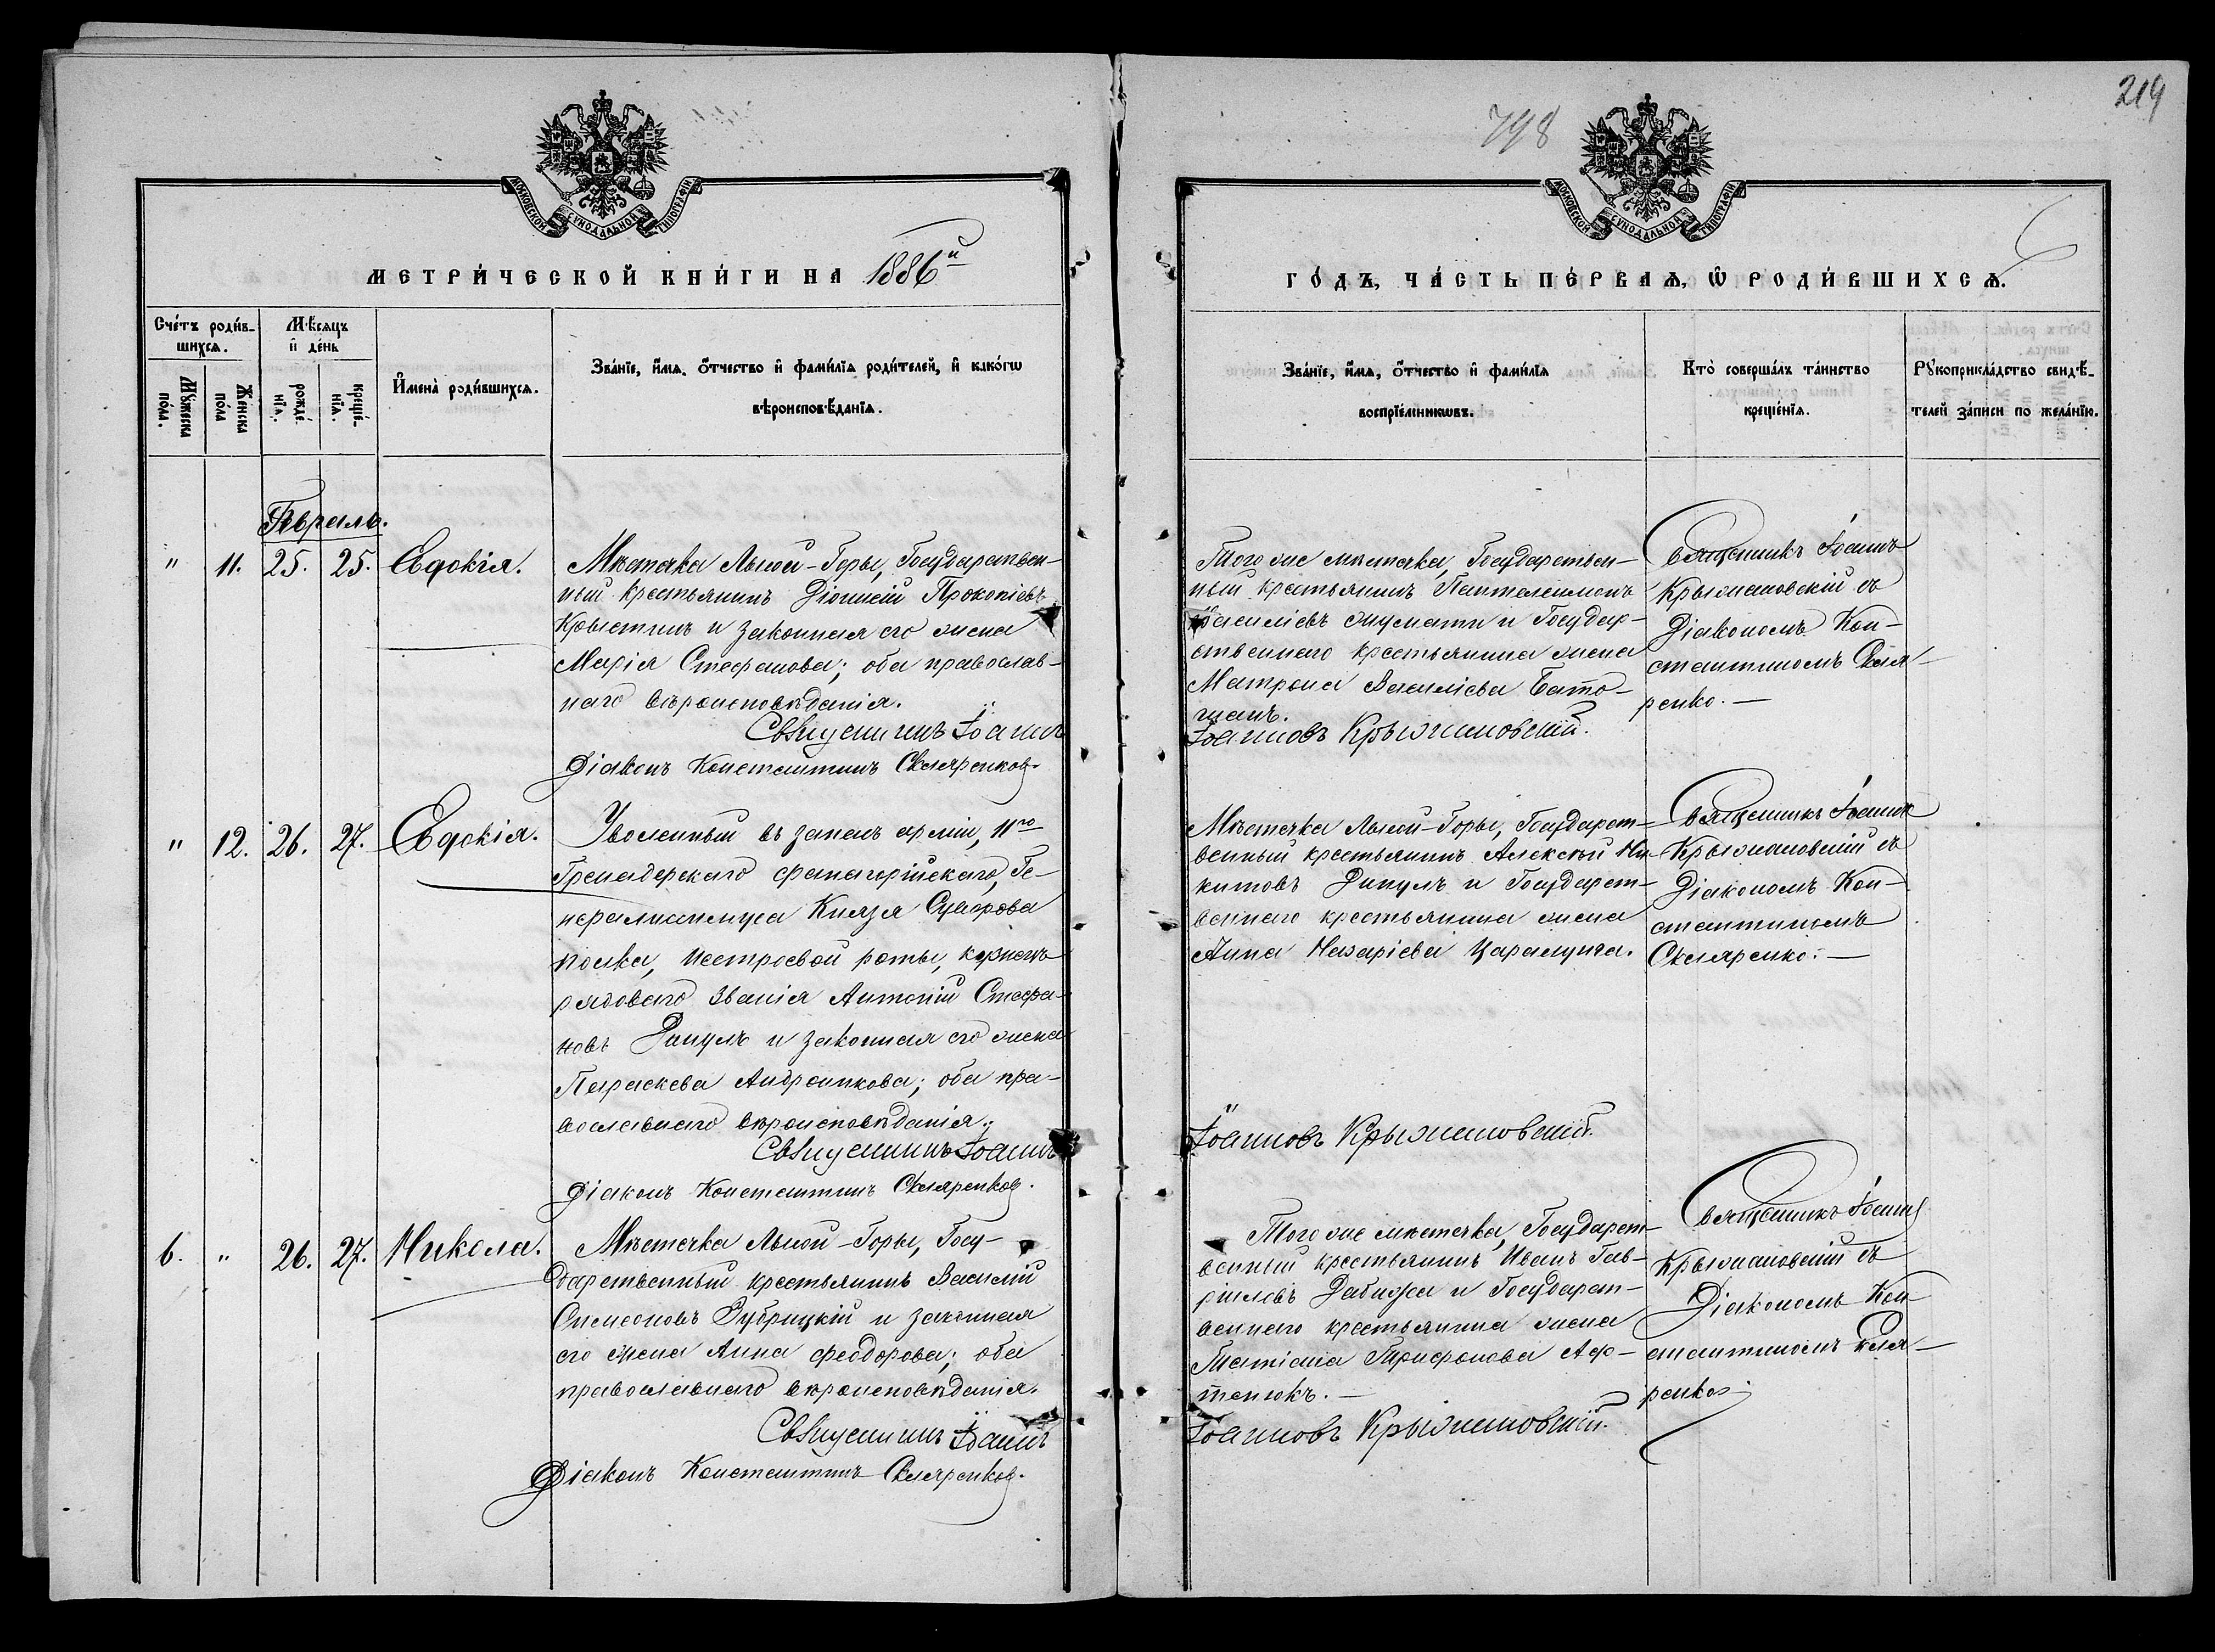 219
798
МОСКОВСКОЙ СѴНОДАЛЬНОЙ ТИПОГРАФІИ
МОСКОВСКОЙ СѴНОДАЛЬНОЙ ТИПОГРАФІИ
МЕТРИ́ЧЕСКОЙ КНИ́ГИ НА 1886й
ГО́ДЪ, ЧА́СТЬ ПЕ́РВАѦ, Ѽ РОДИ́ВШИХСѦ.
Сче́тъ роди́в-
шихсѧ.
Мѣ́сѧцъ
и҆ де́нь
Мꙋ́жеска
по́ла.
Же́нска
по́ла
рожде́-
нїѧ.
креще́-
нїѧ.
И҆мена̀ роди́вшихсѧ.
Зва́нїе, и҆́мѧ, ѻ҆́тчество и҆ фами́лїѧ роди́телей, и҆ како́гѡ
вѣроисповѣ́данїѧ.
Зва́нїе, и҆́мѧ, ѻ҆́тчество и҆ фами́лїѧ
воспрїе́мникѡвъ.
Кто̀ соверша́лъ та́инство
креще́нїѧ.
Рꙋкоприкла́дство свидѣ́-
телей за́писи по жела́нїю.
Февраль.
" 11. 25. 25. Евдокія.
Мѣстечка Лысой-Горы, Государствен-
ный крестьянинъ Діонисій Прокопіевъ
Крыстинъ и законная его жена
Марія Стефанова; оба православ-
наго вѣроисповѣданія.
Священникъ Іоаннъ
Діаконъ Константинъ Скляренко.
Того же мѣстечка, Государствен-
ный крестьянинъ Пантелеимонъ
Василіевъ и Государ-
ственнаго крестьянина жена
Матрона Василіева Бато-
жанъ.
Іоанновъ Крыжановскій.
Священникъ Іоаннъ
Крыжановскій съ
Діакономъ Кон-
стантиномъ Скля-
ренко.—
" 12. 26. 27. Евдокія.
Уволенный въ запасъ арміи, 11го
Гренадерскаго Фанагорійскаго, Ге-
нералиссимуса Князя Суворова
полка, нестроевой роты,
рядоваго званія Антоній Стефа-
новъ Дипулъ и законная его жена
Параскева Андроникова; оба пра-
вославнаго вѣроисповѣданія.
Священникъ Іоаннъ
Діаконъ Константинъ Скляренко.
Мѣстечка Лысой-Горы, Государст-
венный крестьянинъ Алексѣй Ни-
китовъ Дипулъ и Государст-
веннаго крестьянина жена
Анна Назаріева Царалунга.
Іоанновъ Крыжановскій.
Священникъ Іоаннъ
Крыжановскій съ
Діакономъ Кон-
стантиномъ
Скляренко.—
6. " 26. 27. Никола.
Мѣстечка Лысой-Горы, Госу-
дарственный крестьянинъ Василій
Симеоновъ Зубрицкій и законная
его жена Анна Феодорова; оба
православнаго вѣроисповѣданія.
Священникъ Іоаннъ
Діаконъ Константинъ Скляренко.
Того же мѣстечка, Государст-
венный крестьянинъ Иванъ Гав-
риловъ Дабижа и Государст-
веннаго крестьянина жена
Татіана Трифонова Аф-
тенюкъ.—
Іоанновъ Крыжановскій.
Священникъ Іоаннъ
Крыжановскій съ
Діакономъ Кон-
стантиномъ Скля-
ренко